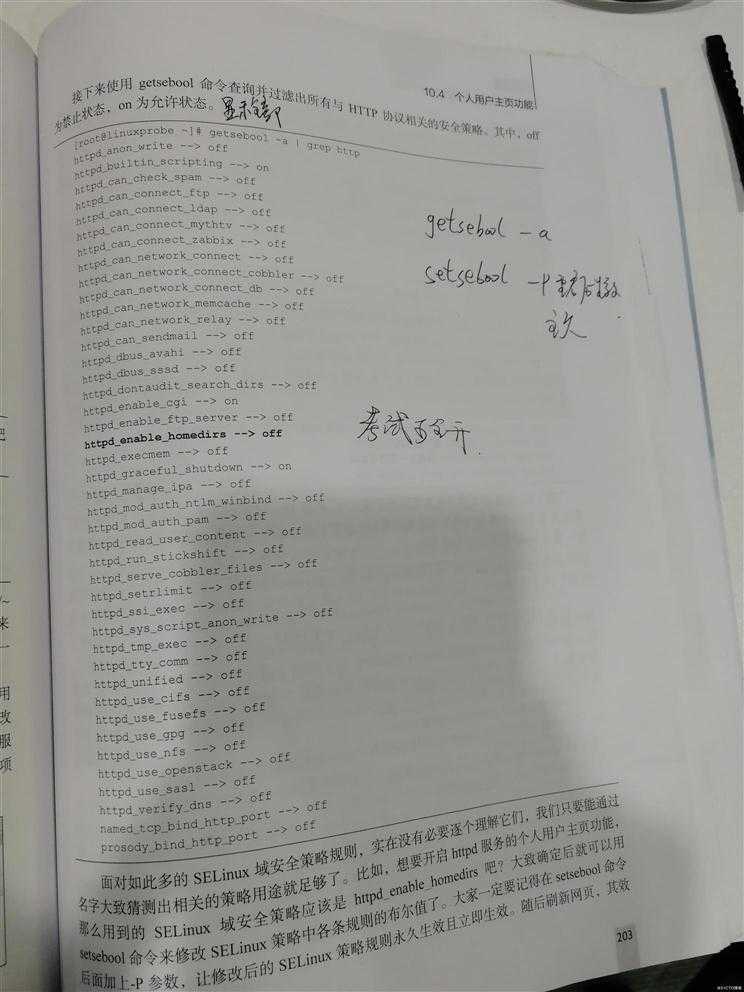 10.4 个人用户主页功能
接下来使用 getsebool 命令查询并过滤出所有与 HTTP 协议相关的安全策略。其中，off
为禁止状态，on 为允许状态。
显示全部
[root@linuxprobe ~]# getsebool -a | grep http
httpd_anon_write --> off
httpd_builtin_scripting --> on
httpd_can_check_spam --> off
httpd_can_connect_ftp --> off
httpd_can_connect_ldap --> off
httpd_can_connect_mythtv --> off
httpd_can_connect_zabbix --> off
httpd_can_network_connect --> off
httpd_can_network_connect_cobbler --> off
httpd_can_network_connect_db --> off
httpd_can_network_memcache --> off
httpd_can_network_relay --> off
httpd_can_sendmail --> off
httpd_dbus_avahi --> off
httpd_dbus_sssd --> off
httpd_dontaudit_search_dirs --> off
httpd_enable_cgi --> on
httpd_enable_ftp_server --> off
httpd_enable_homedirs --> off
httpd_execmem --> off
httpd_graceful_shutdown --> on
httpd_manage_ipa --> off
httpd_mod_auth_ntlm_winbind --> off
httpd_mod_auth_pam --> off
httpd_read_user_content --> off
httpd_run_stickshift --> off
httpd_serve_cobbler_files --> off
httpd_setrlimit --> off
httpd_ssi_exec --> off
httpd_sys_script_anon_write --> off
httpd_tmp_exec --> off
httpd_tty_comm --> off
httpd_unified --> off
httpd_use_cifs --> off
httpd_use_fusefs --> off
httpd_use_gpg --> off
httpd_use_nfs --> off
httpd_use_openstack --> off
httpd_use_sasl --> off
httpd_verify_dns --> off
named_tcp_bind_http_port --> off
prosody_bind_http_port --> off
getsebool -a
setsebool -P
考试 全开
面对如此多的 SELinux 域安全策略规则，实在没有必要逐个理解它们，我们只要能通过
名字大致猜测出相关的策略用途就足够了。比如，想要开启 httpd 服务的个人用户主页功能，
那么用到的 SELinux 域安全策略应该是 httpd_enable_homedirs 吧？大致确定后就可以用
setsebool 命令来修改 SELinux 策略中各条规则的布尔值了。大家一定要记得在 setsebool 命令
后面加上-P 参数，让修改后的 SELinux 策略规则永久生效且立即生效。随后刷新网页，其效
203
来
用
改
服
项
@51CTO博客